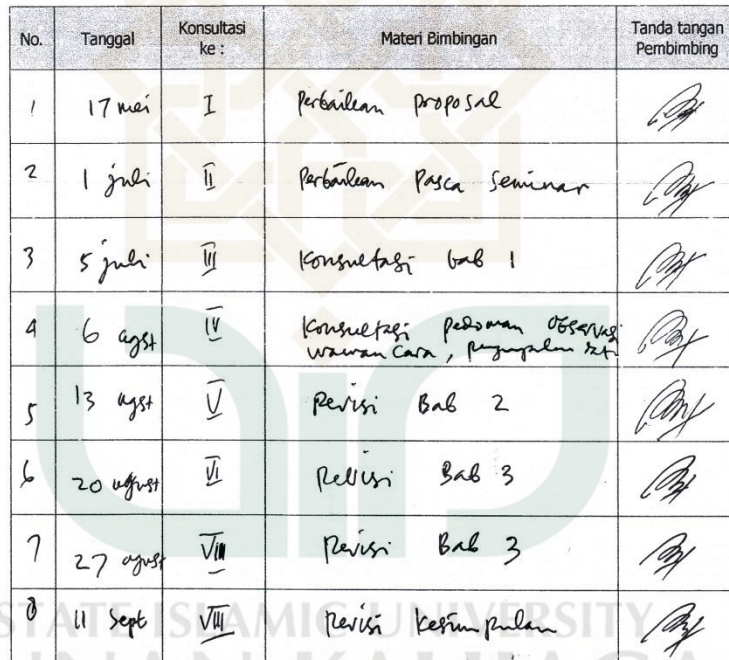 No. Tanggal Konsultasi ke : Materi Bimbingan Tanda tangan Pembimbing
1 17 mei I Perbaikan proposal
2 1 juli II Perbaikan Pasca Seminar
3 5 juli III Konsultasi bab 1
4 6 agst IV Konsultasi pedoman observasi
wawancara, pengumpulan
5 13 agst V Revisi Bab 2
6 20 agust VI Revisi Bab 3
7 27 agust Bab 3 Revisi
8 11 Sept VIII Revisi Kesimpulan
STATE ISLAMIC UNIVERSITY
SUNAN KALIJAGA